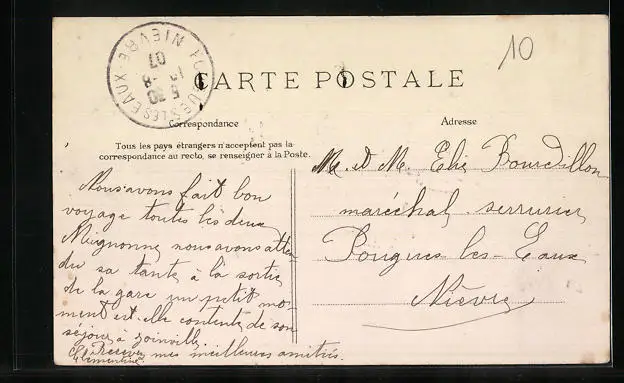 10
POUGUES-LES-EAUX NIÈVRE
5 30
07
CARTE POSTALE
Correspondance
Adresse
Tous les pays étrangers n'acceptent pas la
correspondance au recto, se renseigner à la Poste.
M. et M. Elie Bourdillon
maréchal serrurier
Pougues les-Eaux
Nièvre
Nous avons fait bon
voyage toutes les deux
Mignonne nous avons atten
du sa tante à la sortie
de la gare un petit mo-
ment est-elle contente de son
séjour à Joinville.
Recevez mes meilleures amitiés.
Clémentine